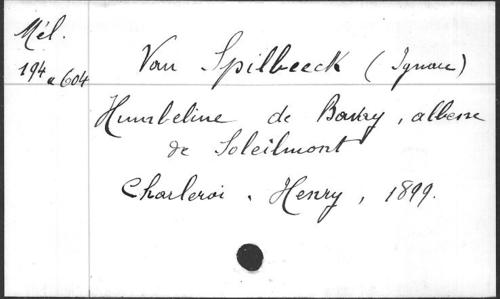 Mél.
194a604
Van Spilbeeck (Ignace)
Humbeline de Bavry, abbesse
de Soleilmont
Charleroi. Henry, 1899.